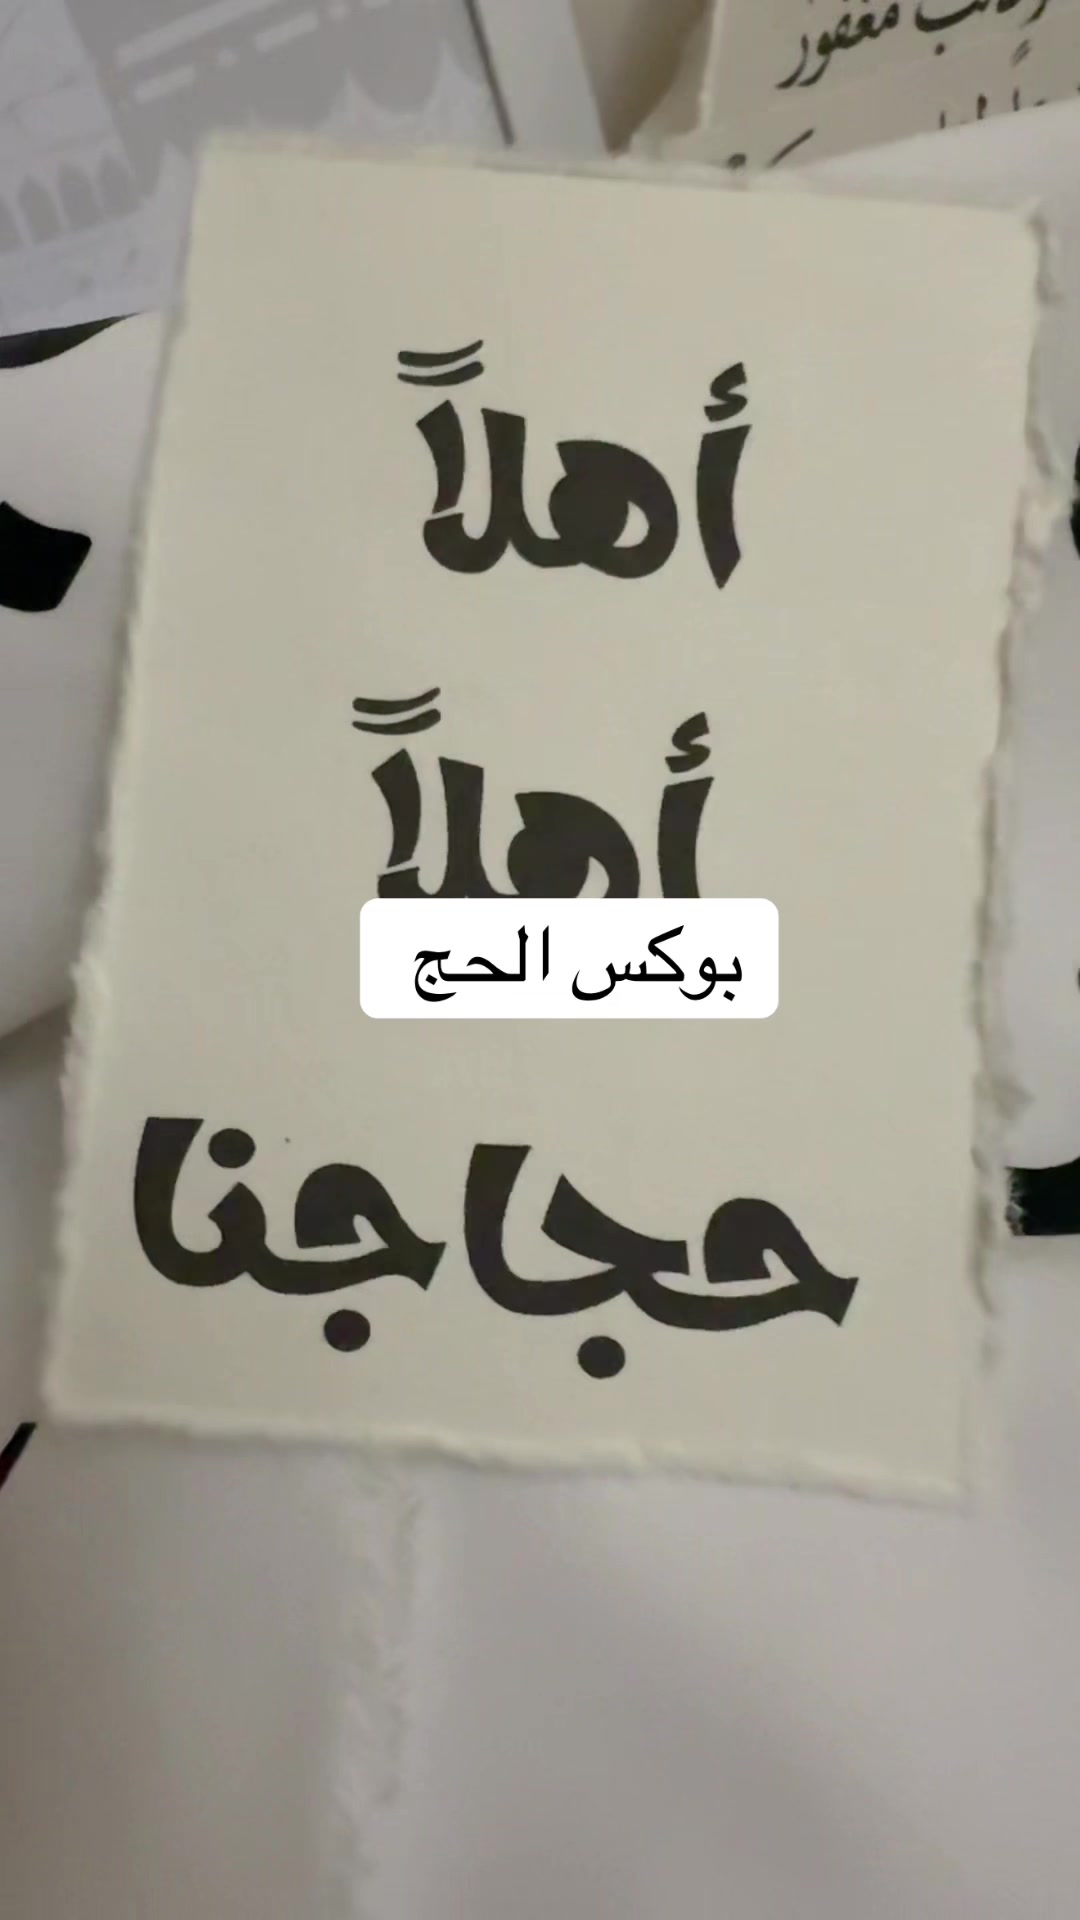 مغفور
أهلاً
أهلاً
بوكس الحج
حجاجنا